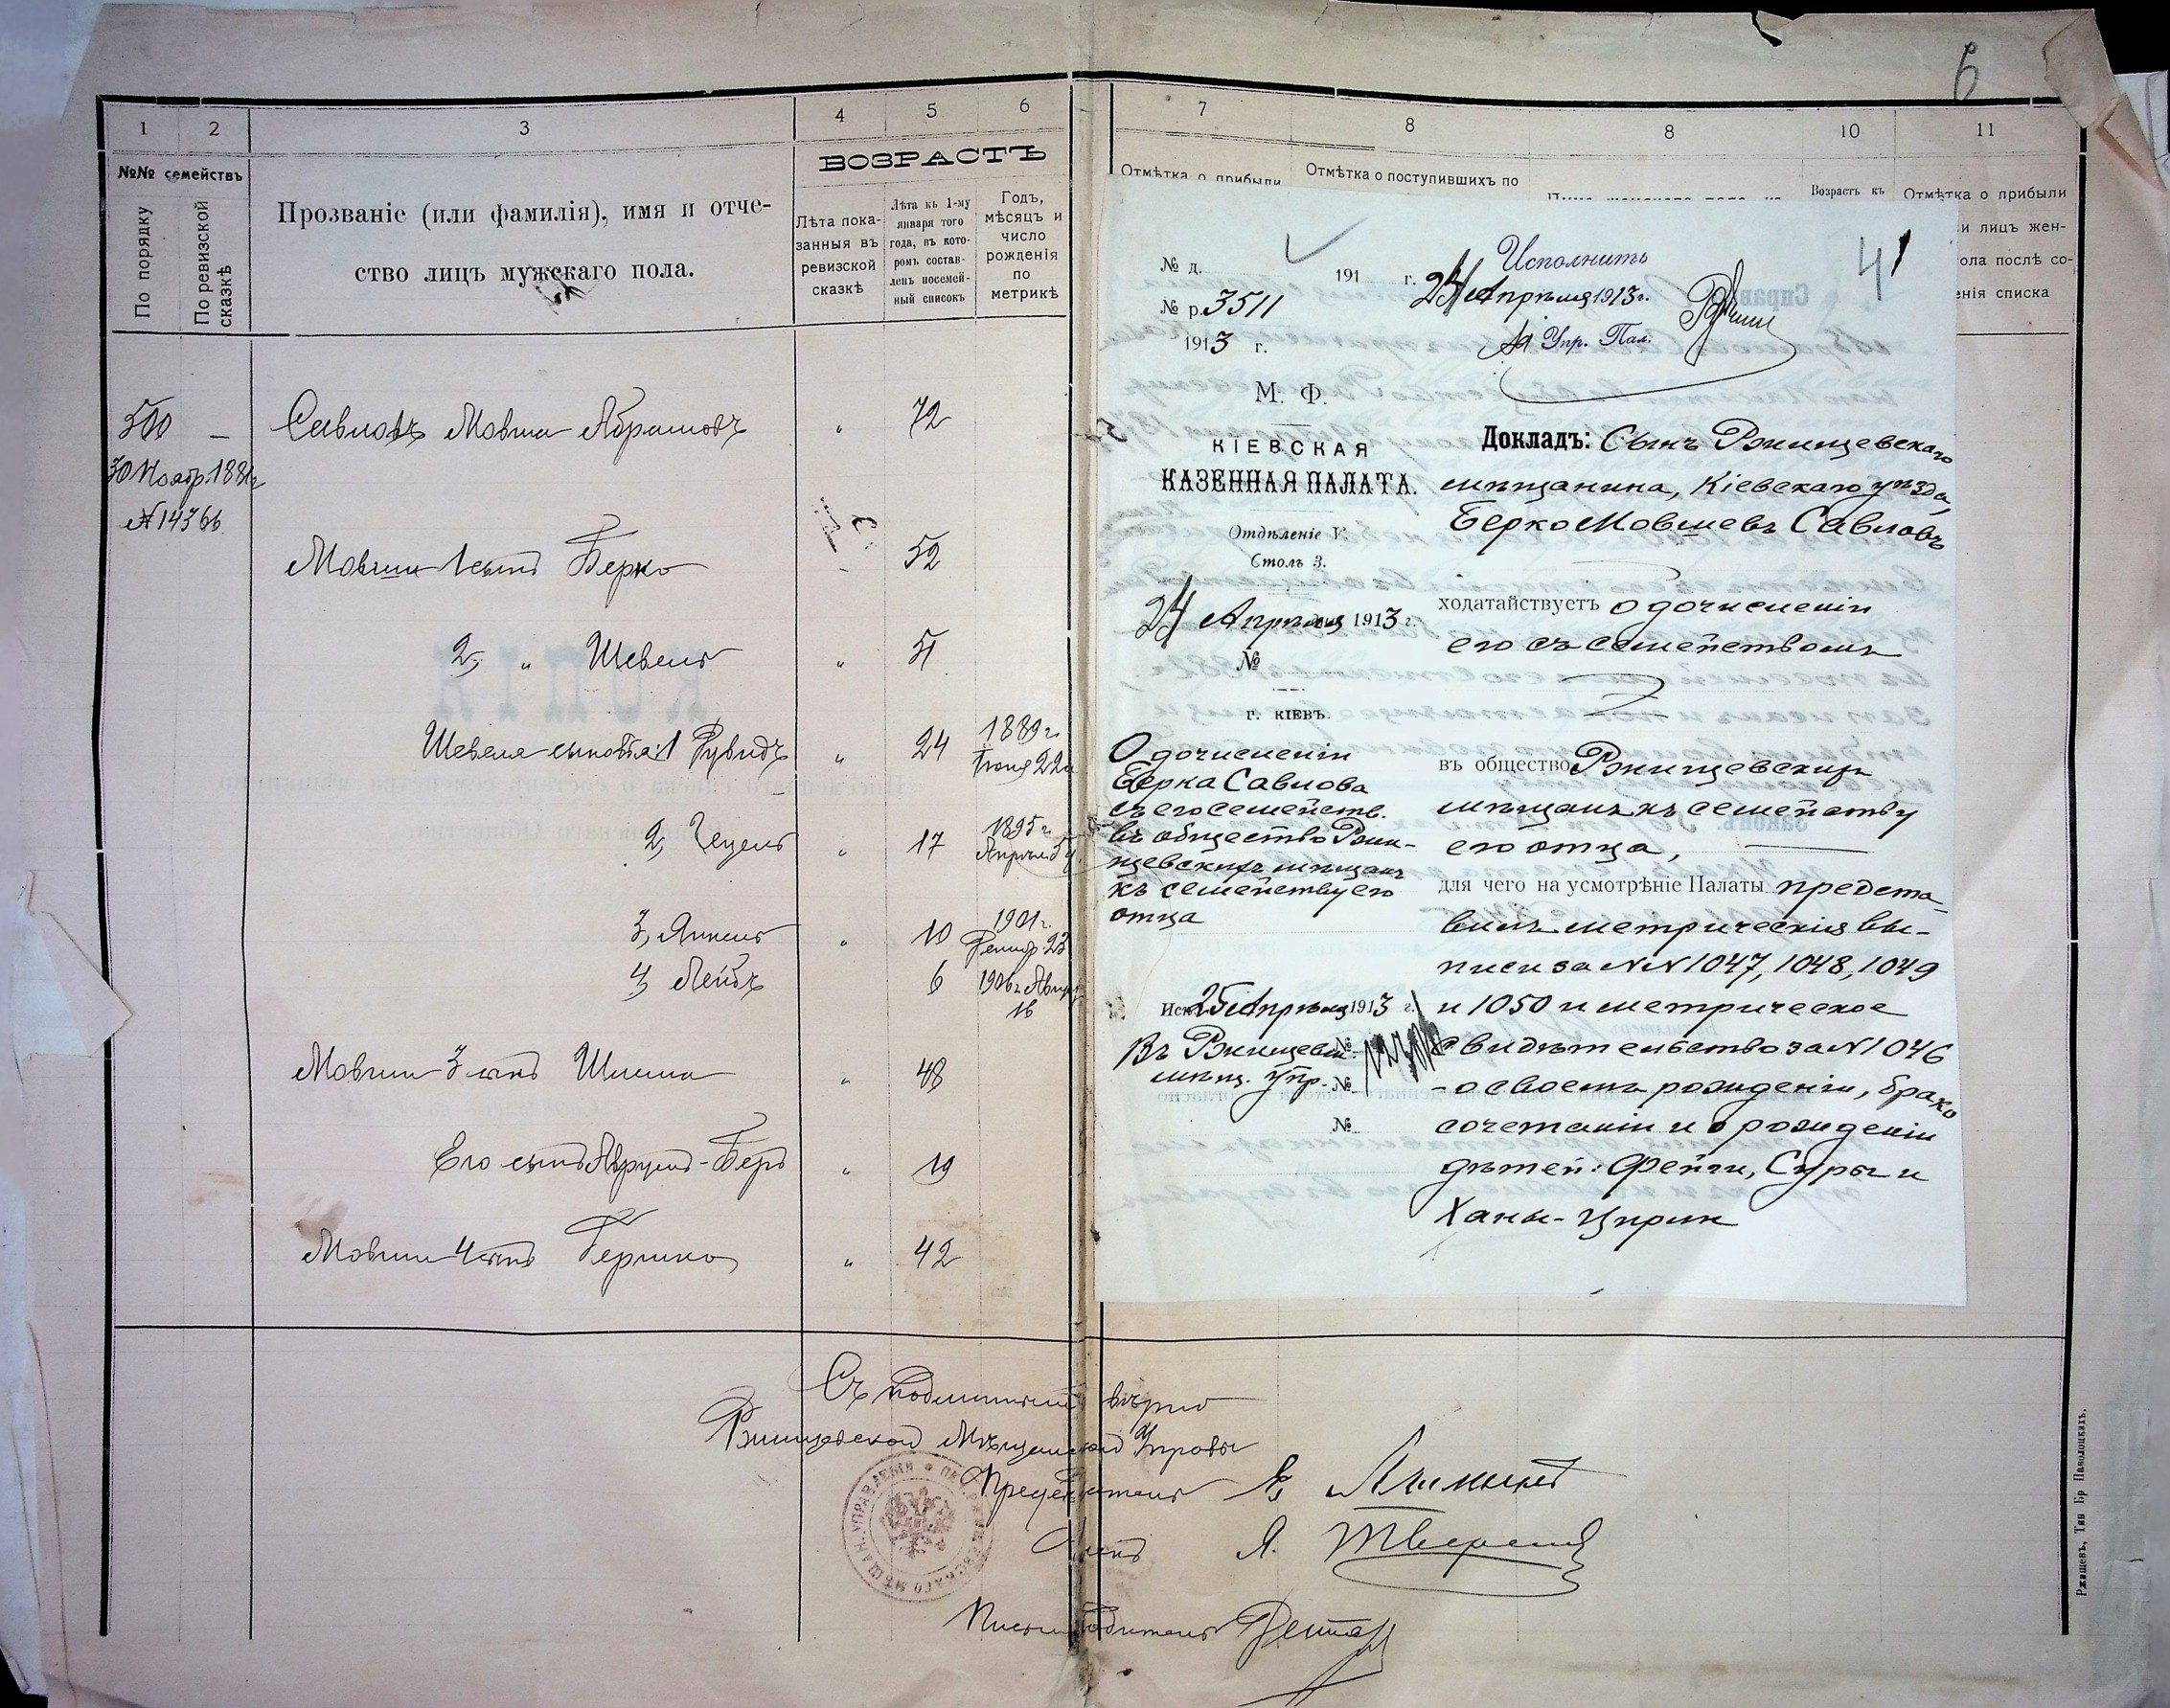 6
1 2 3 4 5 6
№№ семействъ
По порядку
По ревизской сказкѣ
Прозваніе (или фамилія), имя и отче-
ство лицъ мужскаго пола.
ВОЗРАСТЪ
Лѣта пока-
занныя въ
ревизской
сказкѣ
Лѣта къ 1-му
января того
года, въ кото-
ромъ состав-
ленъ посемей-
ный списокъ
Годъ,
мѣсяцъ и
число
рожденія
по
метрикѣ
500 — Савловъ Мовша Абрамовъ „ 72
30 Ноябр. 1881г
№ 14366
Мовши 1 сынъ Берко - 52
2, „ Шевель „ 51
Шевеля сыновья: 1 Рувидъ „ 24 1889 г.
Іюня 22
2, „ 17 1895 г.
Апрѣля 5
3, Янкель „ 10 1901 г.
23
4, Лейбъ 6 1906 г.
16
Мовши 3 сынъ Шлема „ 48
Его сынъ Аврумъ-Беръ „ 19
Мовши 4 сынъ Гершко „ 42
7 8 8 10 11
Отмѣтка о прибыли
Отмѣтка о поступившихъ по
Возрастъ къ
Отмѣтка о прибыли
и лицъ жен-
ола послѣ со-
енія списка
41
№ д.
191 г.
№ р. 3511
1913 г.
Исполнить
24 Апрѣля 1913 г.
Упр. Пал.
М. Ф.
КІЕВСКАЯ
КАЗЕННАЯ ПАЛАТА.
Отдѣленіе V.
Столъ 3.
24 Апрѣля 1913 г.
№
г. КІЕВЪ.
О дочисленіи
Берка Савлова
съ его семейств.
въ общество Ржи-
щевскихъ мѣщанъ
къ семейству его
отца
Исп. 25 Апрѣля 1913 г.
Въ Ржищевск. №
мѣщ. Упр. №
№
Докладъ: Сынъ Ржищевскаго
мѣщанина, Кіевскаго уѣзда,
Берко Мовшевъ Савловъ
ходатайствуетъ о дочисленіи
его съ семействомъ
въ общество Ржищевскихъ
мѣщанъ къ семейству
его отца,
для чего на усмотрѣніе Палаты предста-
вилъ метрическія вы-
писи за №№ 1047, 1048, 1049
и 1050 и метрическое
свидѣтельство за № 1046
- о своемъ рожденіи, брако
сочетаніи и о рожденіи
дѣтей: Фейги, Суры и
Ханы-Ципри
Съ подлиннымъ вѣрно
Ржищевской Мѣщанской Управы
Предсѣдатель
Членъ Я.
Письмоводитель
Ржищевъ, Тип Бр Паволоцкихъ.